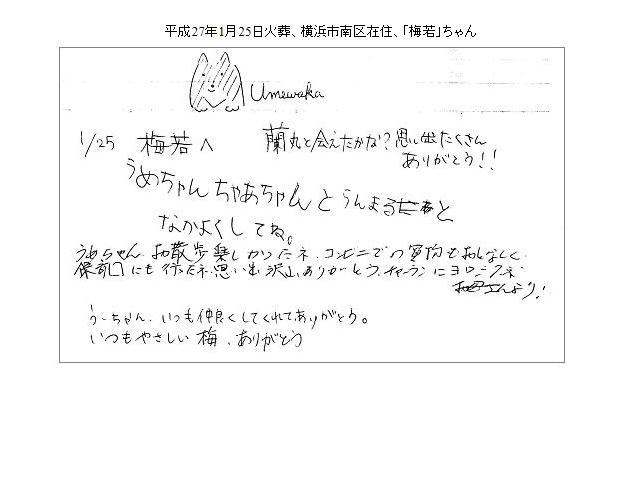 平成27年1月25日火葬、横浜市南区在住、「梅若」ちゃん
Umewaka
1/25 梅若へ 蘭丸と会えたかな?思い出たくさん
ありがとう!!
うめちゃん ちゃあちゃんと らんまると
なかよくしてね。
うめちゃん、お散歩楽しかったネ、コンビニでの買物もおとなしく、
保育口にも行ったネ、思い出沢山ありがとう、チャーランにヨロシクネ
お母さんより!
うーちゃん、いつも仲良くしてくれてありがとう。
いつもやさしい梅、ありがとう